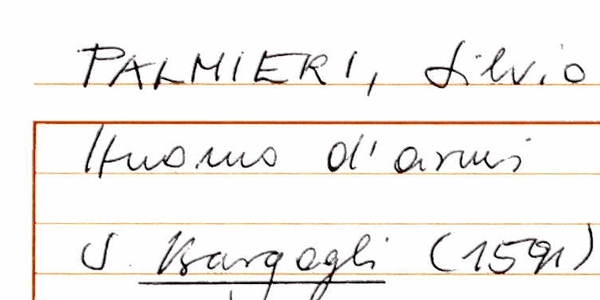 PALMIERI, Silvio
Huomo d'armi
S. Bargagli (1591)